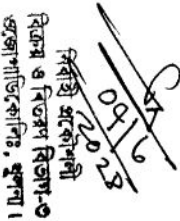 04/6
2028
নির্বাহী প্রকৌশলী
বিক্রয় ও বিতরণ বিভাগ-৩
ওজোপাডিকোলিঃ, খুলনা।